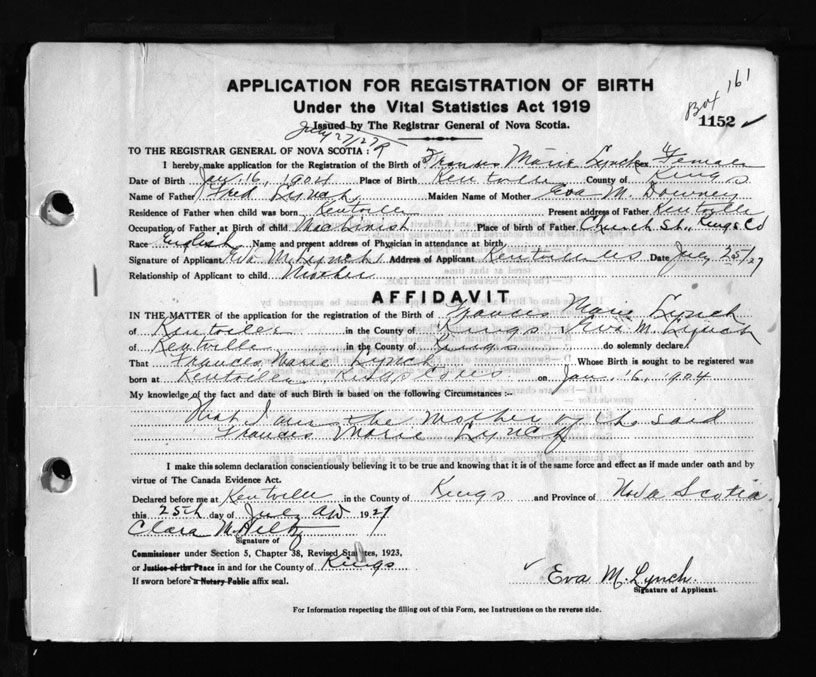 Box 161
APPLICATION FOR REGISTRATION OF BIRTH
Under the Vital Statistics Act 1919
1152
Issued by The Registrar General of Nova Scotia.
July 27/27
TO THE REGISTRAR GENERAL OF NOVA SCOTIA:
I hereby make application for the Registration of the Birth of Frances Marie Lynch Sex Female
Date of Birth Jan. 16, 1904 Place of Birth Kentville County of Kings
Name of Father Fred Lynch Maiden Name of Mother Eva M. Downey
Residence of Father when child was born Kentville Present address of Father Kentville
Occupation of Father at Birth of child Machinist Place of birth of Father Church St., Kings Co
Race English Name and present address of Physician in attendance at birth
Signature of Applicant Eva M. Lynch Address of Applicant Kentville NS Date July 25/27
Relationship of Applicant to child Mother
AFFIDAVIT
IN THE MATTER of the application for the registration of the Birth of Frances Marie Lynch
of Kentville in the County of Kings Eva M. Lynch
of Kentville in the County of Kings do solemnly declare:
That Frances Marie Lynch Whose Birth is sought to be registered was
born at Kentville, Kings on Jan. 16, 1904
My knowledge of the fact and date of such Birth is based on the following Circumstances:-
That I am the Mother of the said
Frances Marie Lynch
I make this solemn declaration conscientiously believing it to be true and knowing that it is of the same force and effect as if made under oath and by
virtue of The Canada Evidence Act.
Declared before me at Kentville in the County of Kings and Province of Nova Scotia.
this 25th day of July AD 1927
Clara M.
Signature of
Commissioner under Section 5, Chapter 38, Revised Statutes, 1923,
or Justice of the Peace in and for the County of Kings
If sworn before a Notary Public affix seal.
Eva M. Lynch.
Signature of Applicant.
For Information respecting the filling out of this Form, see Instructions on the reverse side.